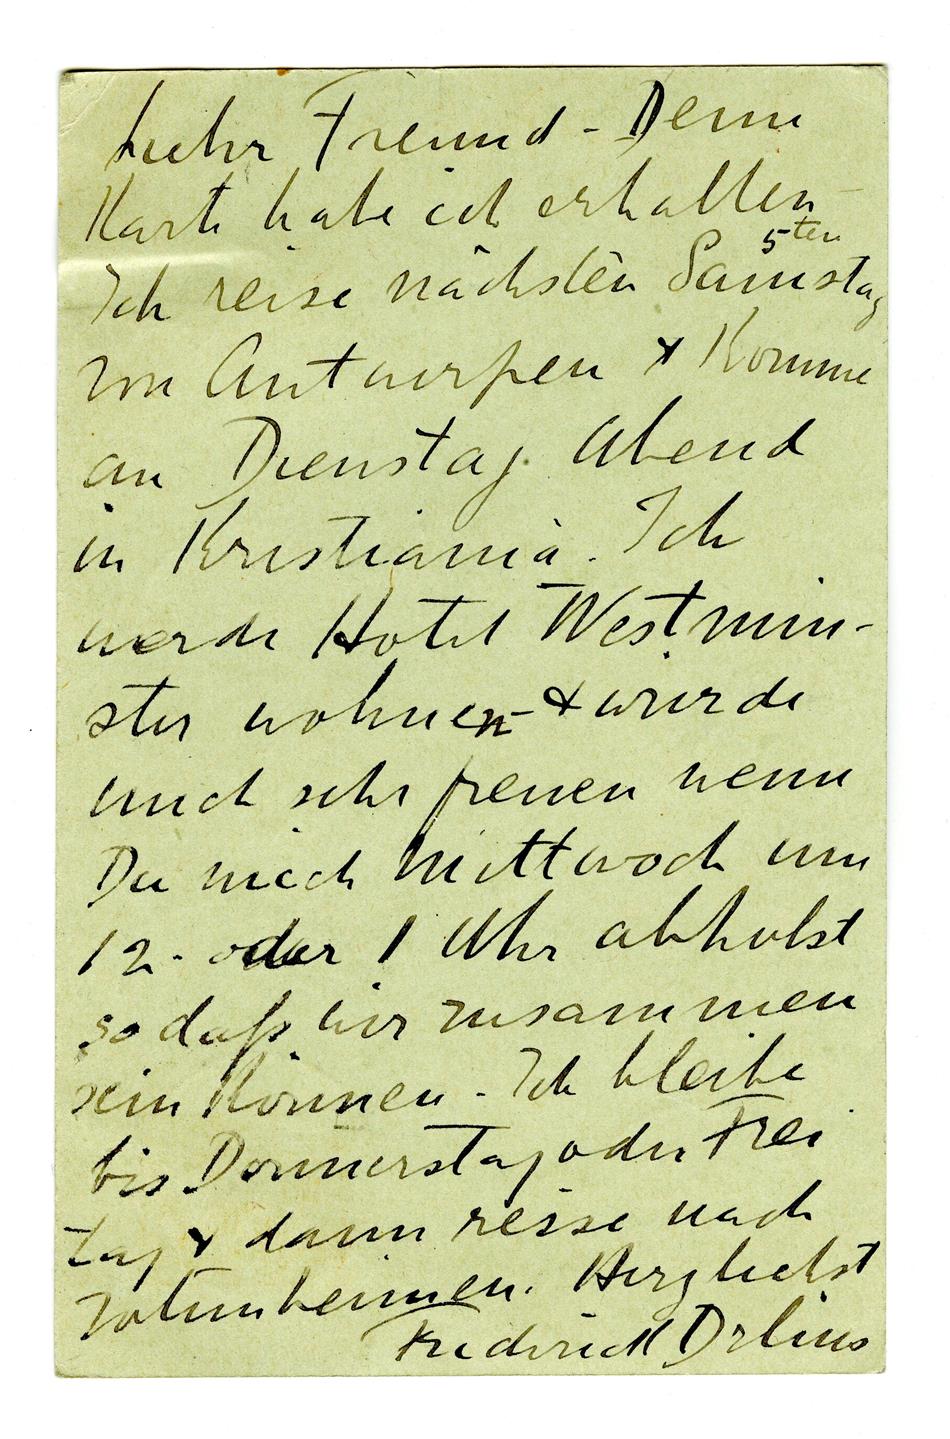 Lieber Freund - Deine
Karte habe ich erhalten -
5ten
Ich reise nächsten Samstag
von Antwerpen & Komme
an Dienstag Abend
in Kristiania. Ich
werde Hotel Westmin-
ster wohnen - & würde
mich sehr freuen wenn
Du mich Mittwoch um
12 - oder 1 Uhr abholst
so daß wir zusammen
sein Können - Ich bleibe
bis Donnerstag oder Frei
tag & dann reise nach
Jotunheimen. Herzlichst
Frederick Delius